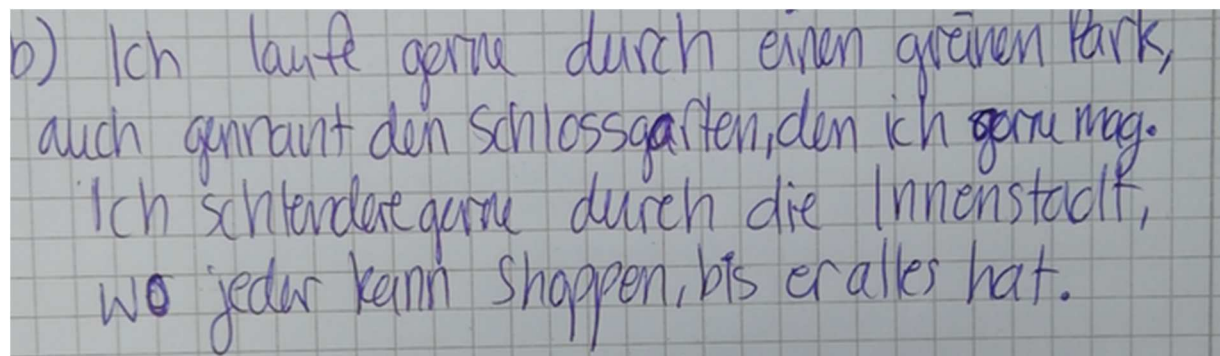 b) Ich laufe gerne durch einen grünen Park,
auch gennant den Schlossgarten, den ich gerne mag.
Ich schlendere gerne durch die Innenstadt,
wo jeder kann shoppen, bis er alles hat.